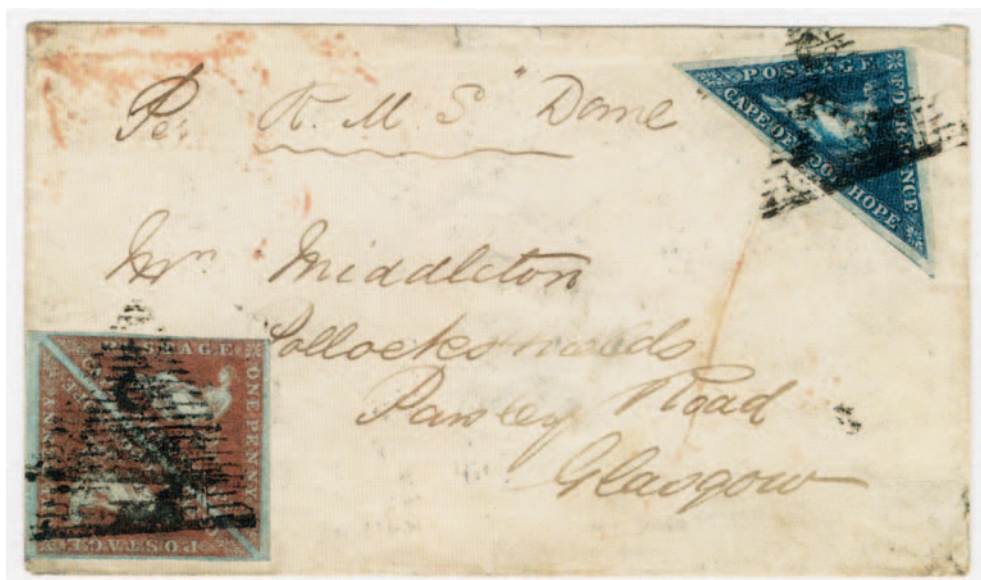 Per R.M.S "Dane
POSTAGE
FOUR PENCE
CAPE OF GOOD HOPE
Mrs Middleton
Pollockshields
Road
Glasgow
POSTAGE
ONE PENNY
POSTAGE